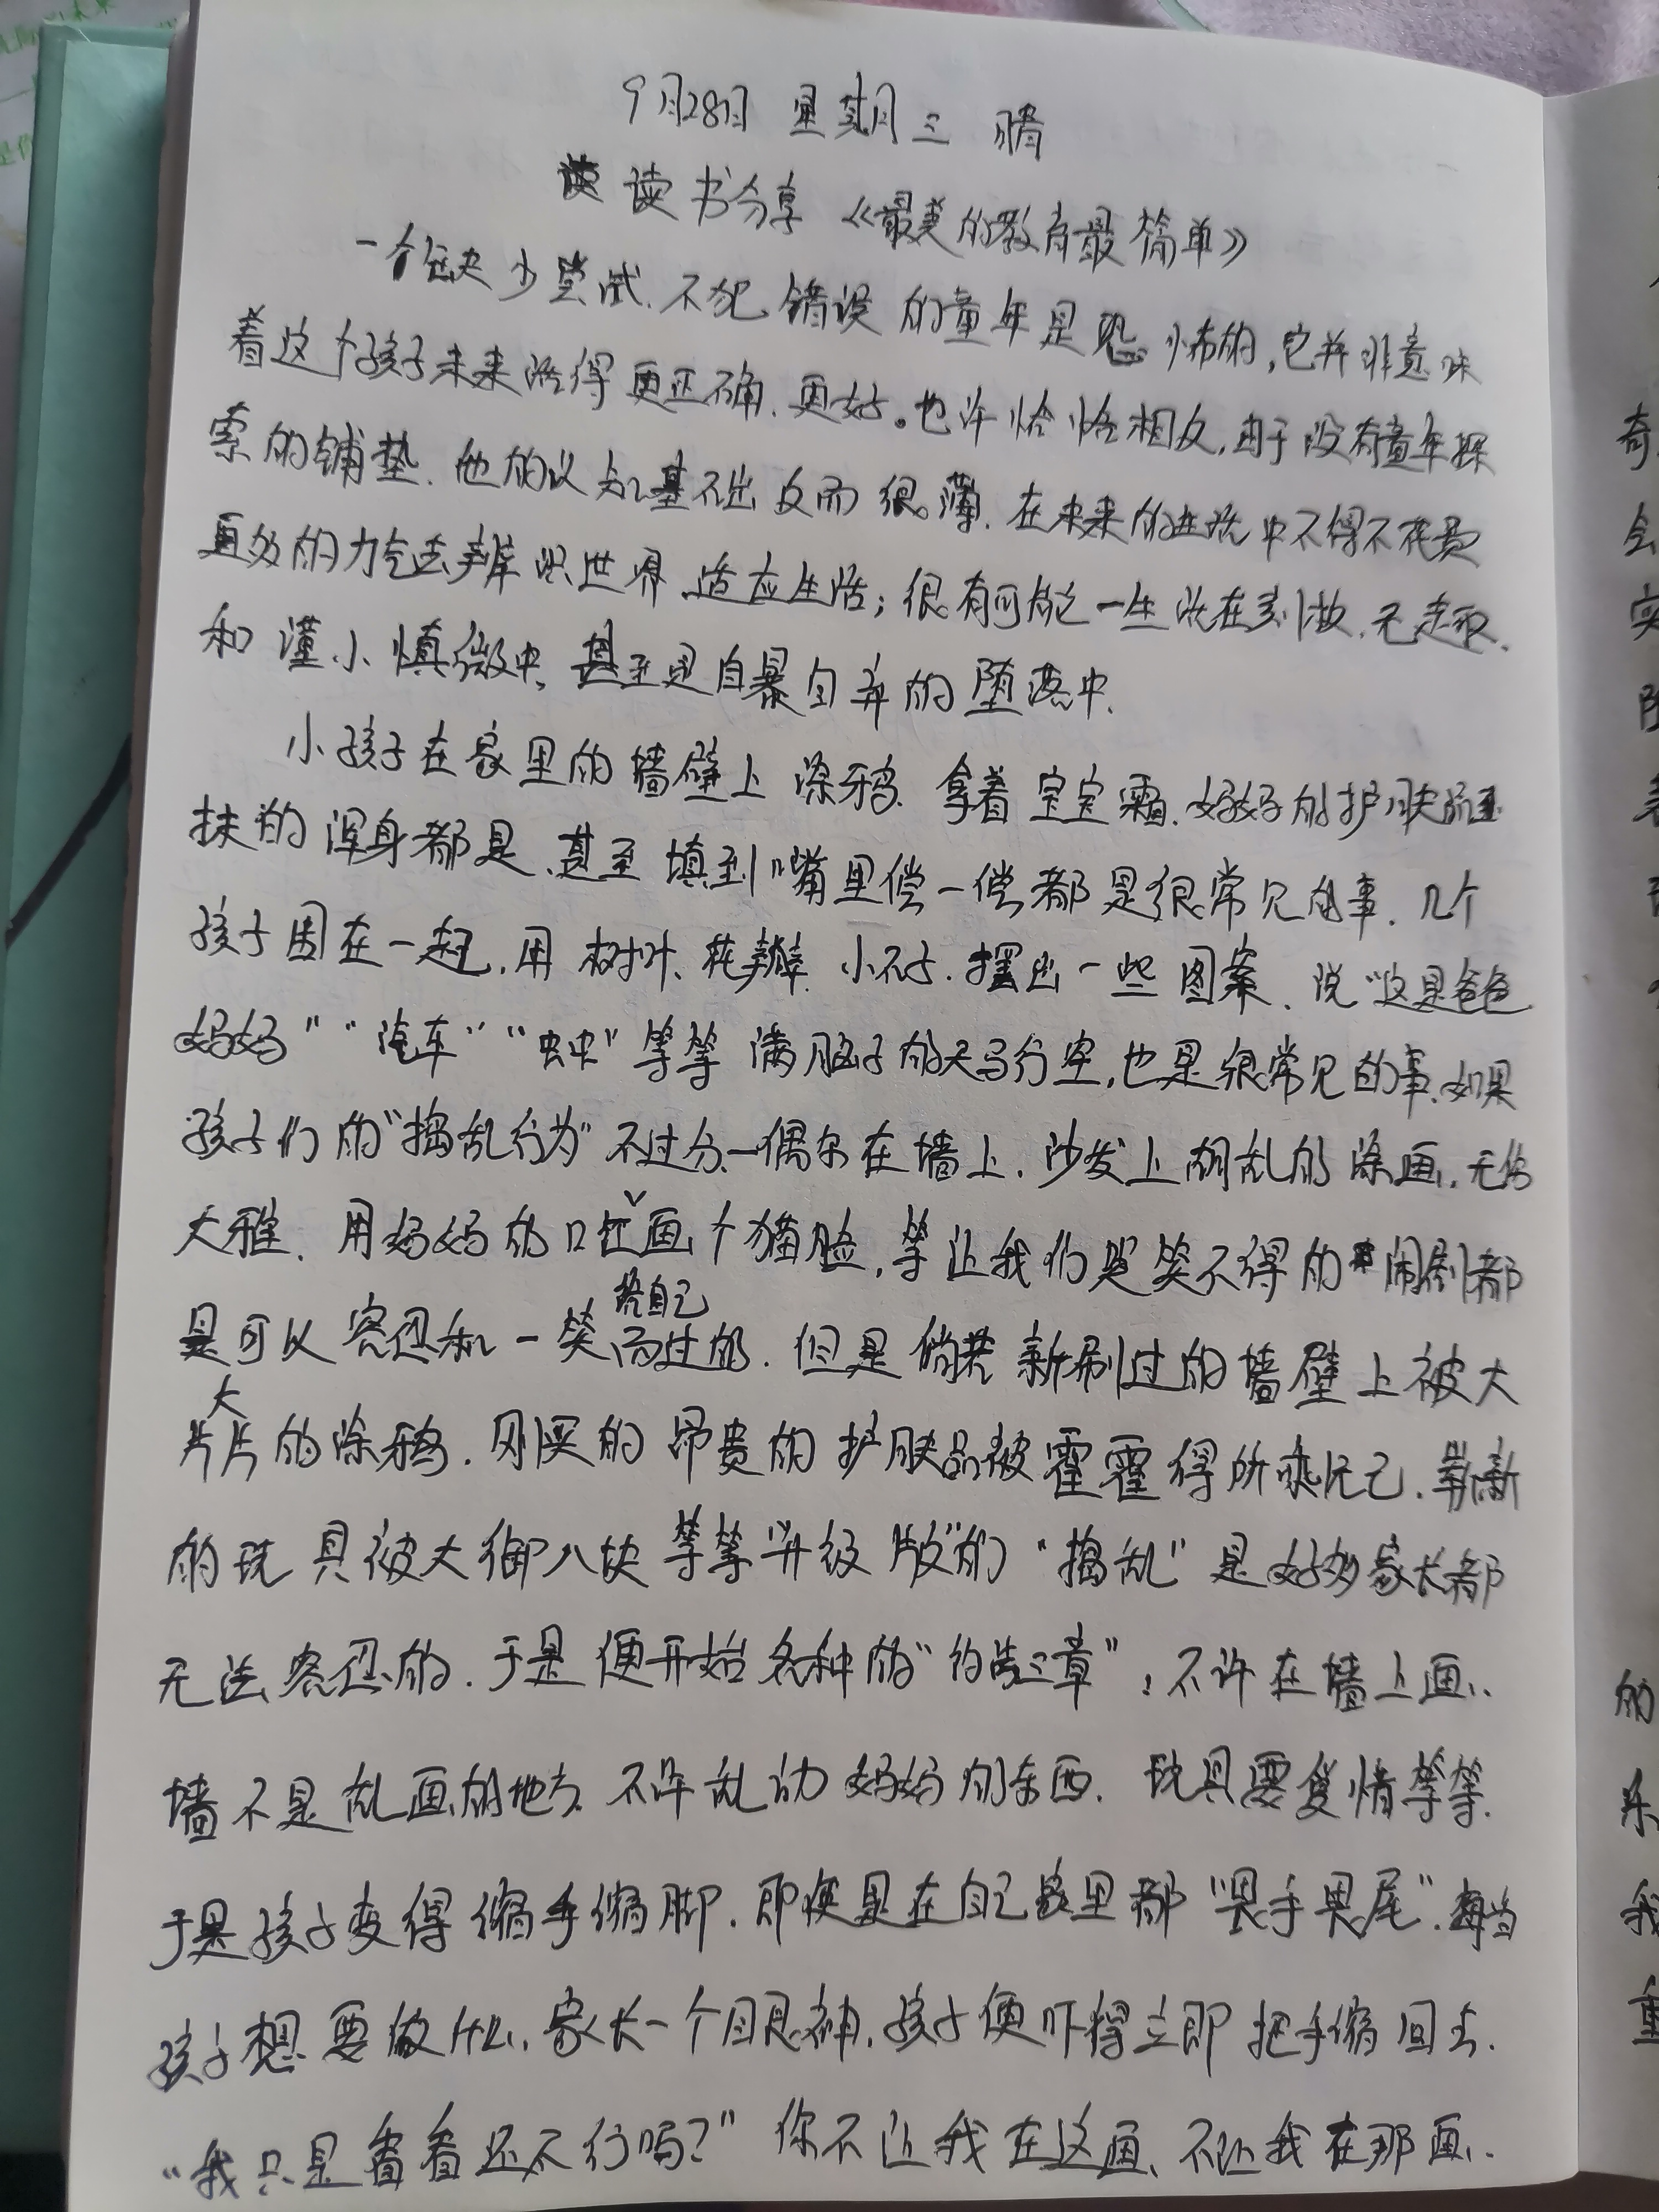 9月28日 星期三 晴
读书分享《最美的教育最简单》
一个缺少尝试、不犯错误的童年是恐怖的,它并非意味
着这个孩子未来活得更正确、更好。也许恰恰相反,由于没有童年探
索的铺垫、他的认知基础反而很薄、在未来的生活中不得不花费
更多的力气去辨识世界、适应生活;很有可能一生活在刻板、无趣、
和谨小慎微中、甚至是自暴自弃的堕落中.
小孩子在家里的墙壁上涂鸦、拿着宝宝霜、妈妈的护肤品
抹的浑身都是、甚至填到嘴里偿一偿都是很常见的事、几个
孩子围在一起、用树叶、花瓣、小石子、摆出一些图案、说“这是爸爸
妈妈”“汽车”“虫虫”等等满脑子的天马行空,也是很常见的事、如果
孩子们的“捣乱行为”不过分—偶尔在墙上、沙发上胡乱的涂画、无伤
大雅、用妈妈的口红给自己画个猫脸,等让我们哭笑不得的闹剧都
是可以容忍和一笑而过的、但是倘若新刷过的墙壁上被大
片大片的涂鸦、刚买的昂贵的护肤品被霍霍得所剩无己、崭新
的玩具被大御八块等等“升级版”的“捣乱”是好多家长都
无法容忍的、于是便开始各种的“约法三章”:不许在墙上画、
墙不是乱画的地方、不许乱动妈妈的东西、玩具要爱惜等等.
于是孩子变得缩手缩脚、即使是在自己家里都“畏手畏尾”、每当
孩子想要做什么、家长一个眼神、孩子便吓得立即把手缩回去、
“我只是看看还不行吗?”你不让我在这画、不让我在那画、